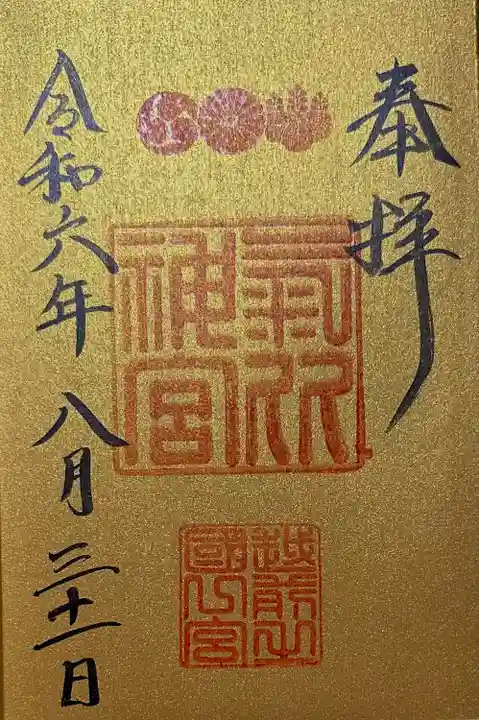 奉拝
氣比
神宮
越前之
國一宮
令和六年八月三十一日